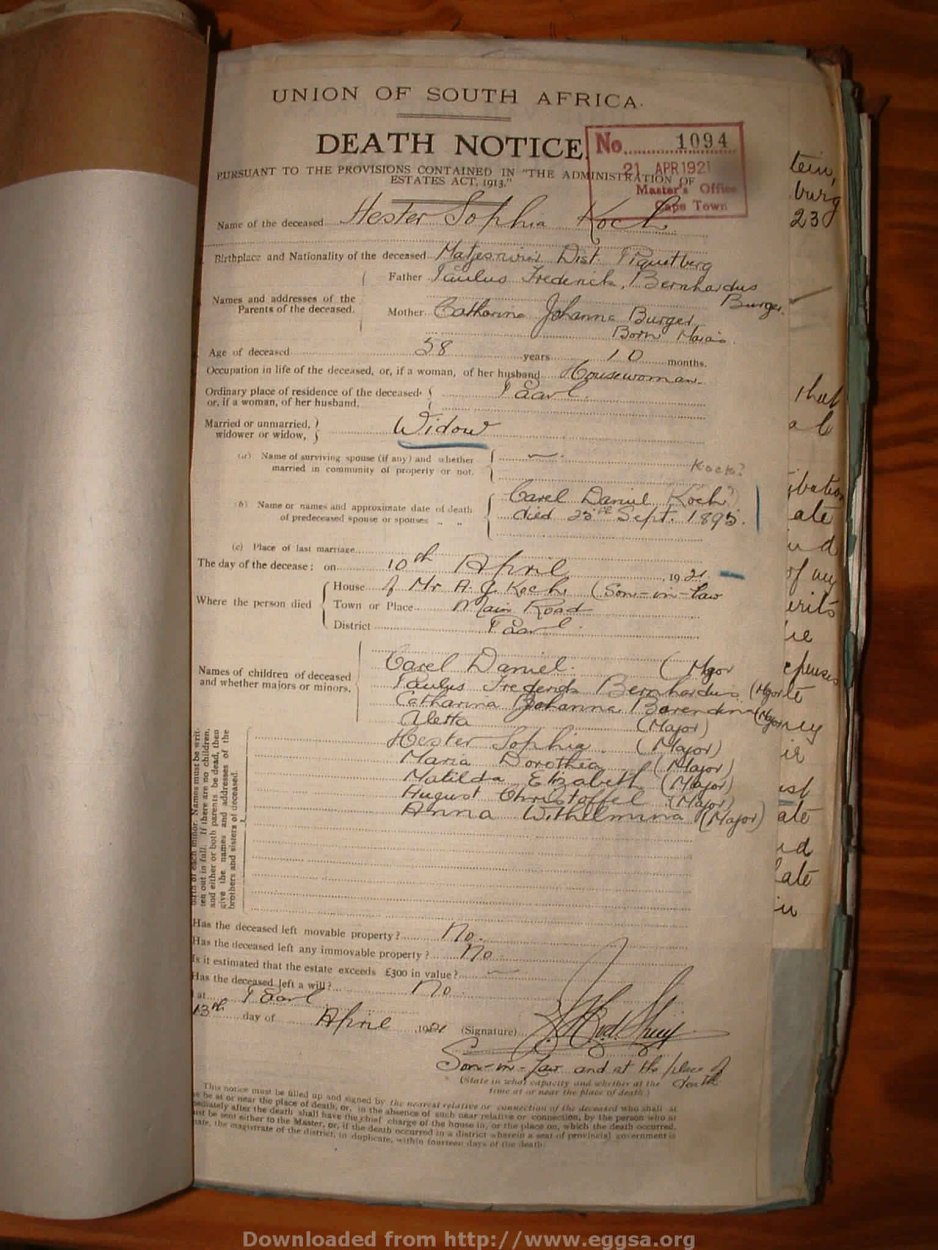 UNION OF SOUTH AFRICA.
DEATH NOTICE
No. 1094
21 APR 1921
Master's Office
Cape Town
PURSUANT TO THE PROVISIONS CONTAINED IN "THE ADMINISTRATION OF
ESTATES ACT, 1913."
Name of the deceased Hester Sophia Koch
Birthplace and Nationality of the deceased Dist. Piquetberg
Names and addresses of the Parents of the deceased.
Father Paulus Frederick Bernhardus
Burger
Mother Catharina Johanna Burger
Born Marais
Age of deceased 58 years 10 months.
Occupation in life of the deceased, or, if a woman, of her husband Housewoman
Ordinary place of residence of the deceased, or, if a woman, of her husband, Paarl
Married or unmarried, widower or widow, Widow
(a) Name of surviving spouse (if any) and whether
married in community of property or not.
Koch?
(b) Name or names and approximate date of death
of predeceased spouse or spouses
Carel Daniel Koch
died 25th Sept. 1895.
(c) Place of last marriage
The day of the decease; on 10th April, 1921
Where the person died
House of Mr A. J. Koch (Son-in-Law
Town or Place Main Road
District Paarl
Names of children of deceased
and whether majors or minors,
Carel Daniel (Major
Paulus Frederick Bernhardus (Major
Catharina Johanna Barendina (Major
Aletta (Major)
Hester Sophia (Major)
Maria Dorothea (Major)
Matilda Elizabeth (Major)
August Christoffel (Major)
Anna Wilhelmina (Major)
birth of each minor. Names must be writ-
ten out in full. If there are no children,
and either or both parents be dead, then
give the names and addresses of the
brothers and sisters of deceased.
Has the deceased left movable property? No.
Has the deceased left any immovable property? No
Is it estimated that the estate exceeds £300 in value?
Has the deceased left a will? No
at Paarl
13th day of April 1921 (Signature)
Son-in-Law and at the place of
death
(State in what capacity and whether at the
time at or near the place of death.)
This notice must be filled up and signed by the nearest relative or connection of the deceased who shall at
be at or near the place of death, or, in the absence of such near relative or connection, by the person who at
immediately after the death shall have the chief charge of the house in, or the place on, which the death occurred,
must be sent either to the Master, or, if the death occurred in a district wherein a seat of provincial government is
the magistrate of the district, in duplicate, within fourteen days of the death.
Downloaded from http://www.eggsa.org